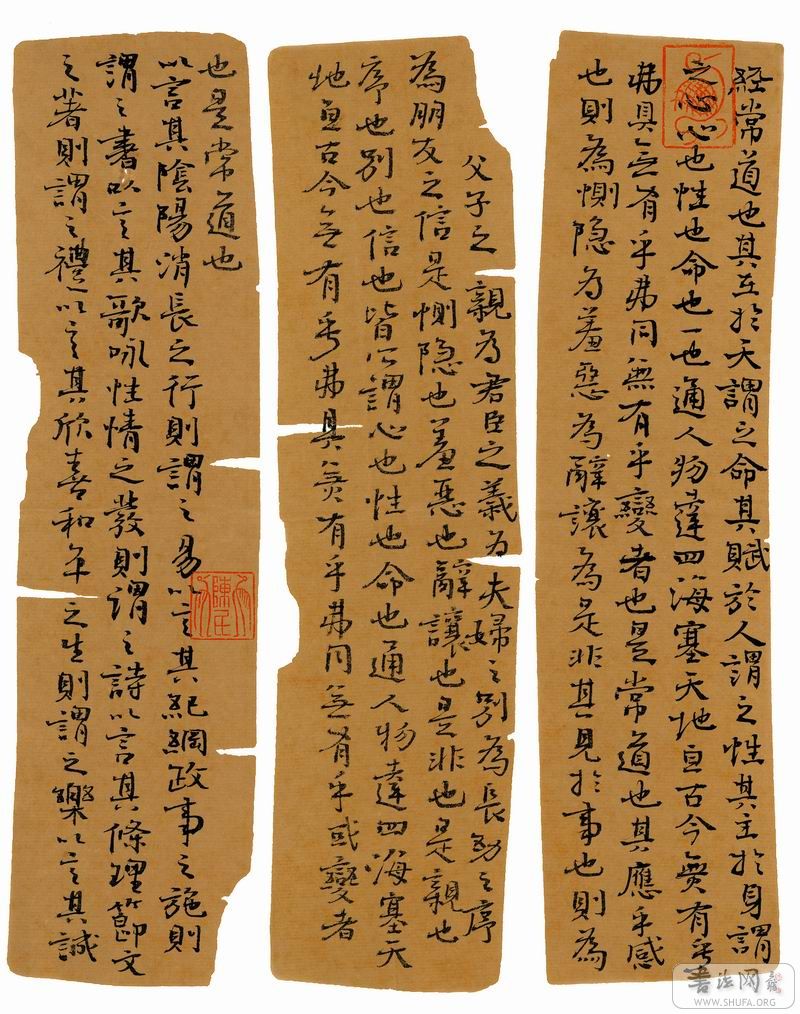 経常道也其在於天謂之命其賦於人謂之性其主於身謂
之心心也性也命也一也通人物達四海塞天地亘古今無有乎
弗具無有乎弗同無有乎變者也是常道也其應乎感
也則為惻隐為羞惡為辭讓為是非其見於事也則為
父子之親為君臣之義為夫婦之别為長幼之序
為朋友之信是惻隐也羞惡也辭讓也是非也是親也
序也别也信也皆所謂心也性也命也通人物達四海塞天
地亘古今無有乎弗具無有乎弗同無有乎或變者
也是常道也
以言其陰陽消長之行則謂之易以言其紀綱政事之施則
謂之書以言其歌咏性情之發則謂之詩以言其條理節文
之著則謂之禮以言其欣喜和平之生則謂之樂以言其誠
書法网
WWW.SHUFA.ORG